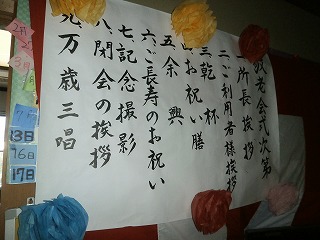 敬老会式次第
一、所長挨拶
二、ご利用者様挨拶
三、乾杯
四、お祝い膳
五、余興
六、ご長寿のお祝い
七、記念撮影
八、閉会の挨拶
九、万歳三唱
13日
16日
17日